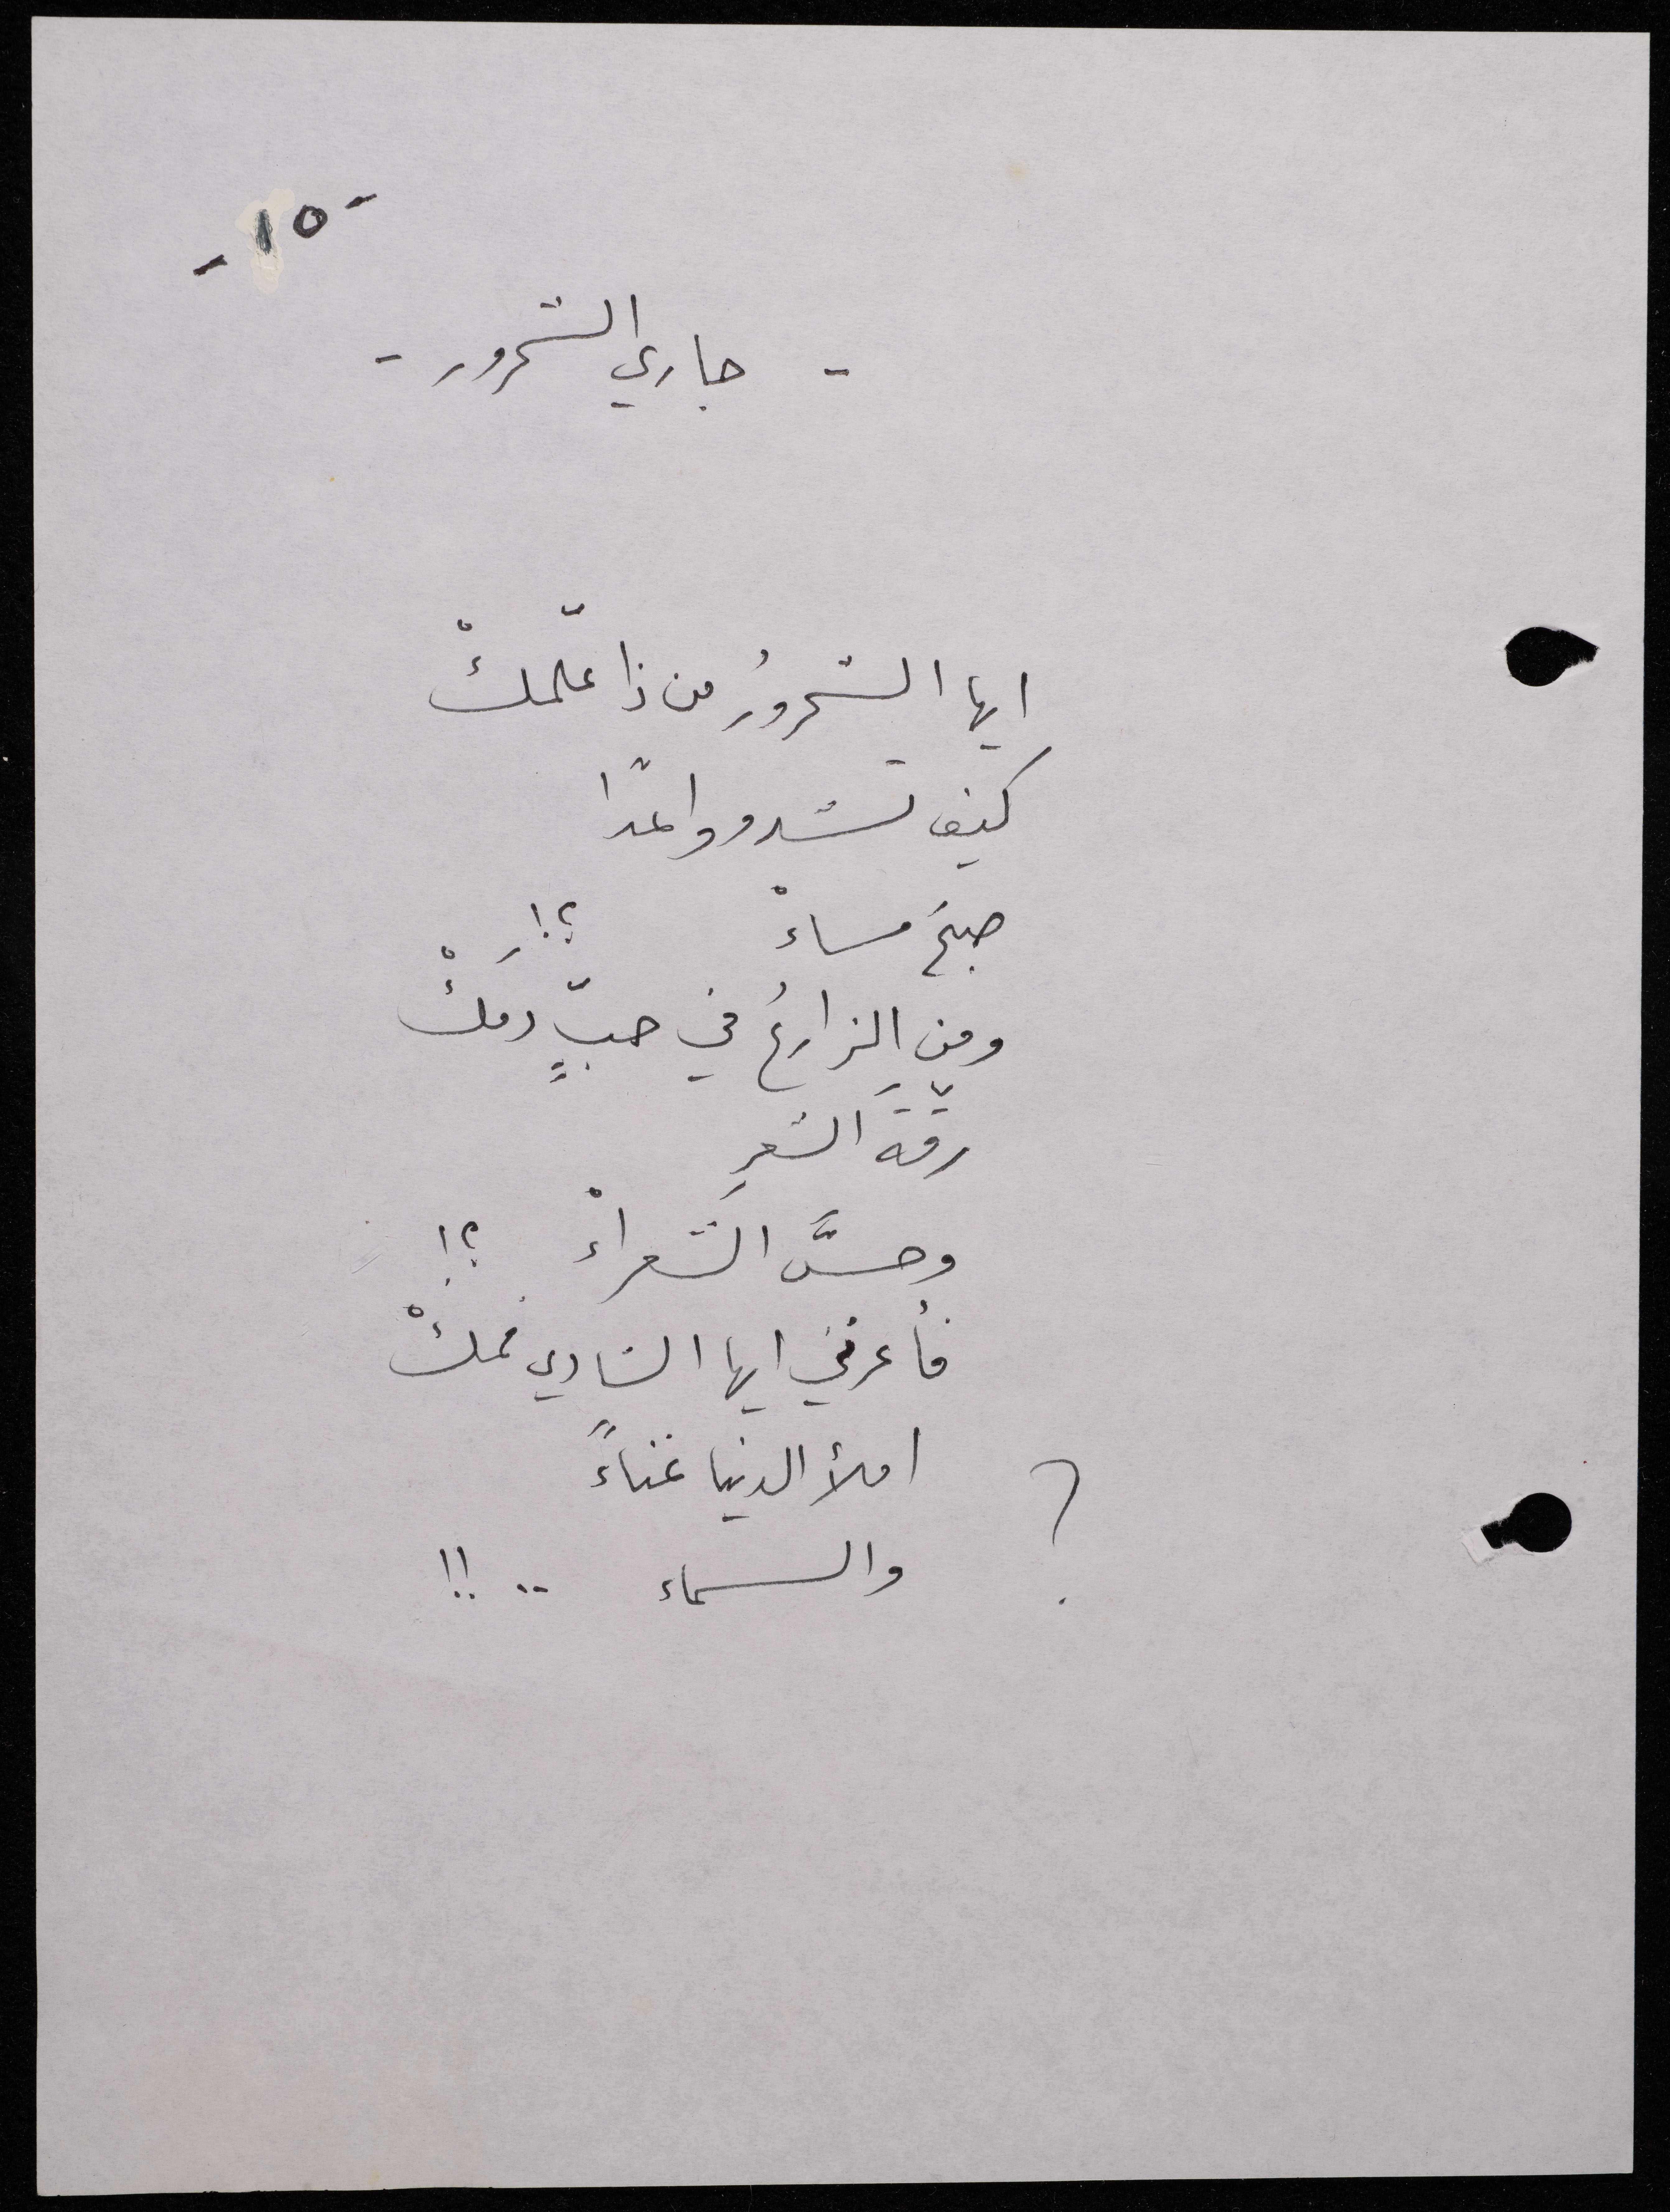 - ١٥ -
- جاري الشحرور -
ايها الشحرورُ من ذا علّمكْ
كيف تشدو واعدًا
صبحَ مساءْ ؟!
ومن الزارعُ في حبٍّ دمَكْ
رقّةَ الشعرِ
وحسَّ الشَعراءْ ؟!
فأعرني ايها الشادي فمكْ
املأ الدنيا غناءً
والسماء .. !!
؟